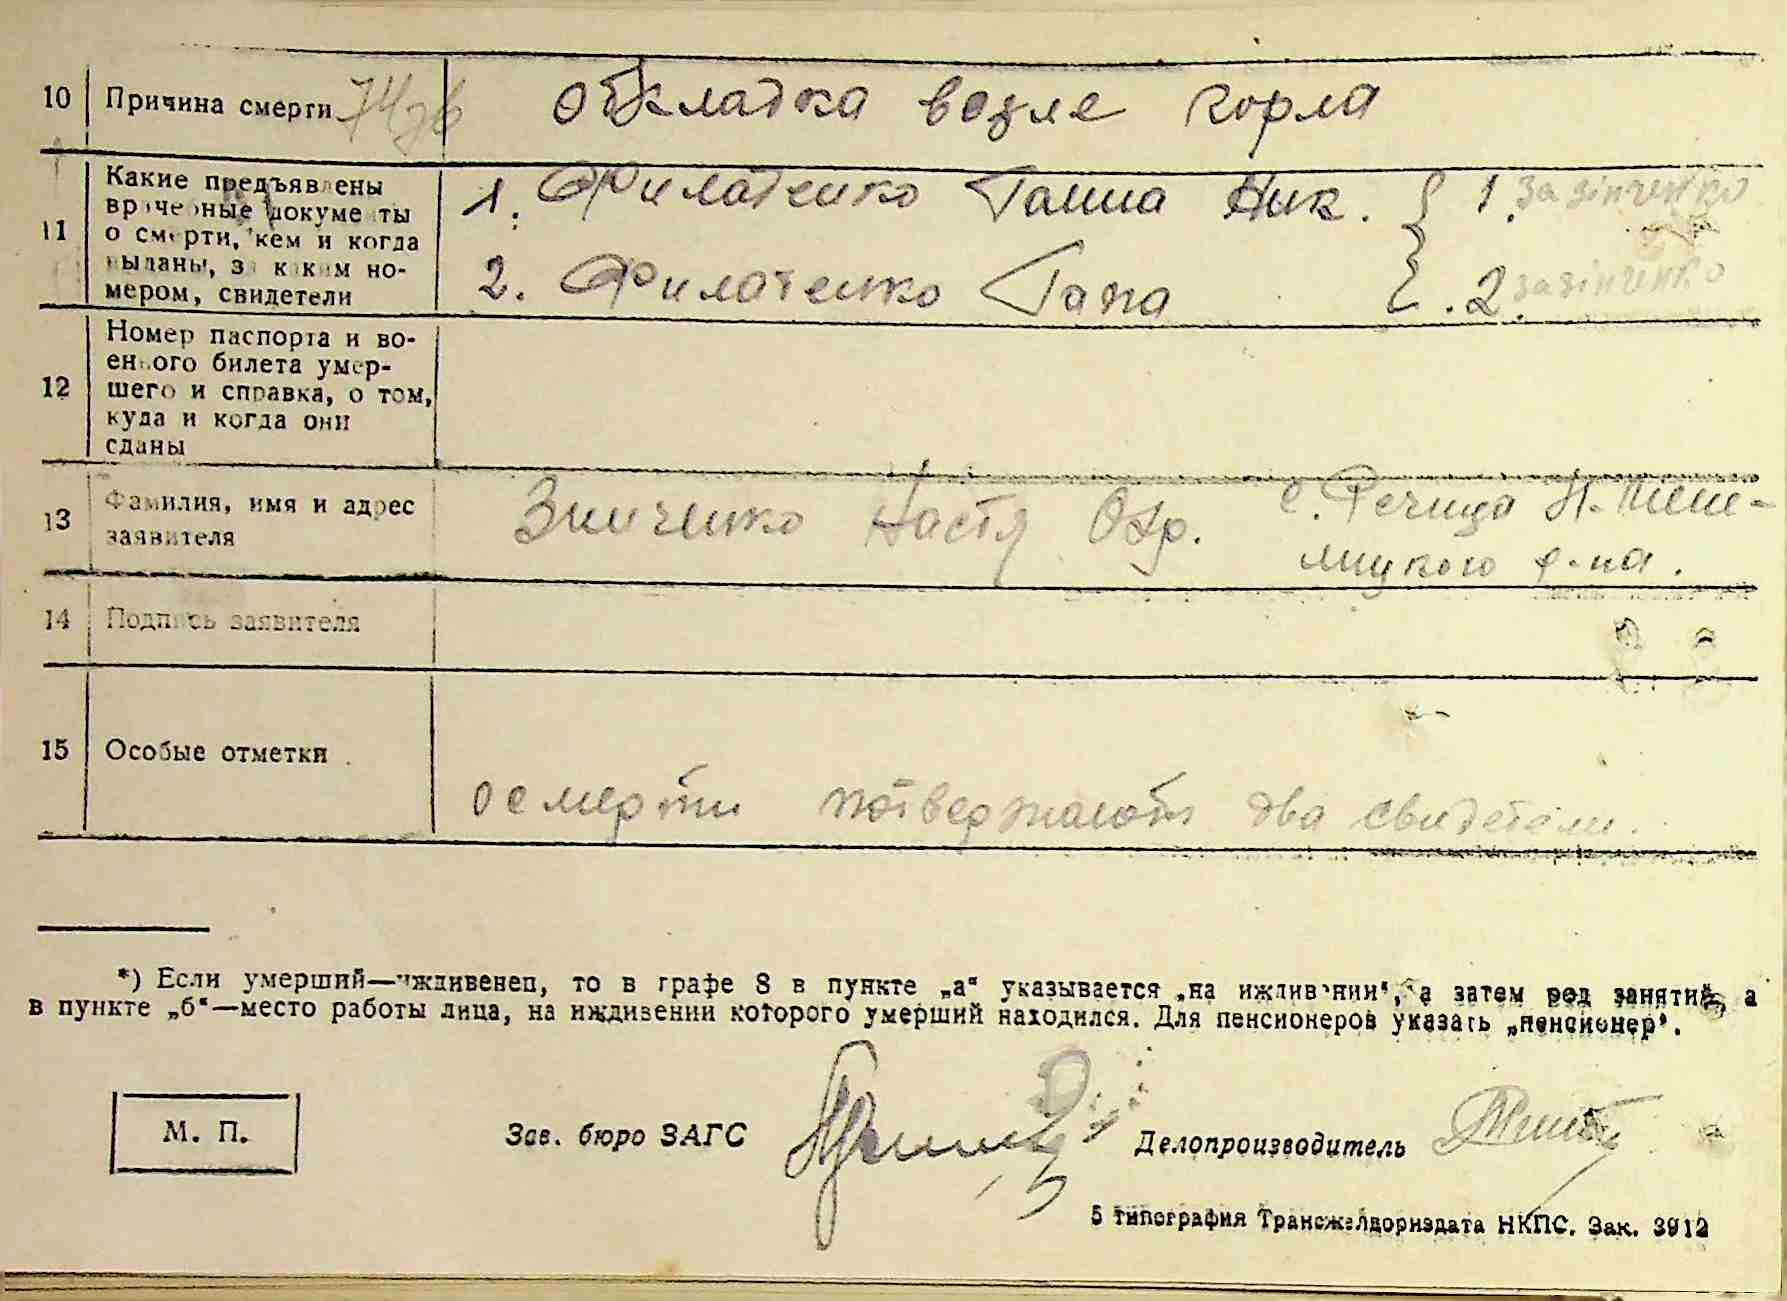 10 Причина смерти обкладка возле горла
11 Какие предъявлены
врачебные документы
о смерти, кем и когда
выданы, за каким но-
мером, свидетели
1. Филатенко Ганна Ник. } 1. за зінченко
2. Филатенко Гапа } 2. за зінченко
12 Номер паспорта и во-
енного билета умер-
шего и справка, о том,
куда и когда они
сданы
13 Фамилия, имя и адрес
заявителя
Зинченко Настя с. Речица
р-на.
14 Подпись заявителя
15 Особые отметки
о смерти потвержают два свидетели.
*) Если умерший—иждивенец, то в графе 8 в пункте „а“ указывается „на иждивении“, а затем род занятий, а
в пункте „б“—место работы лица, на иждивении которого умерший находился. Для пенсионеров указать „пенсионер“.
М. П.
Зав. бюро ЗАГС
Делопроизводитель
5 типография Трансжелдориздата НКПС. Зак. 3912